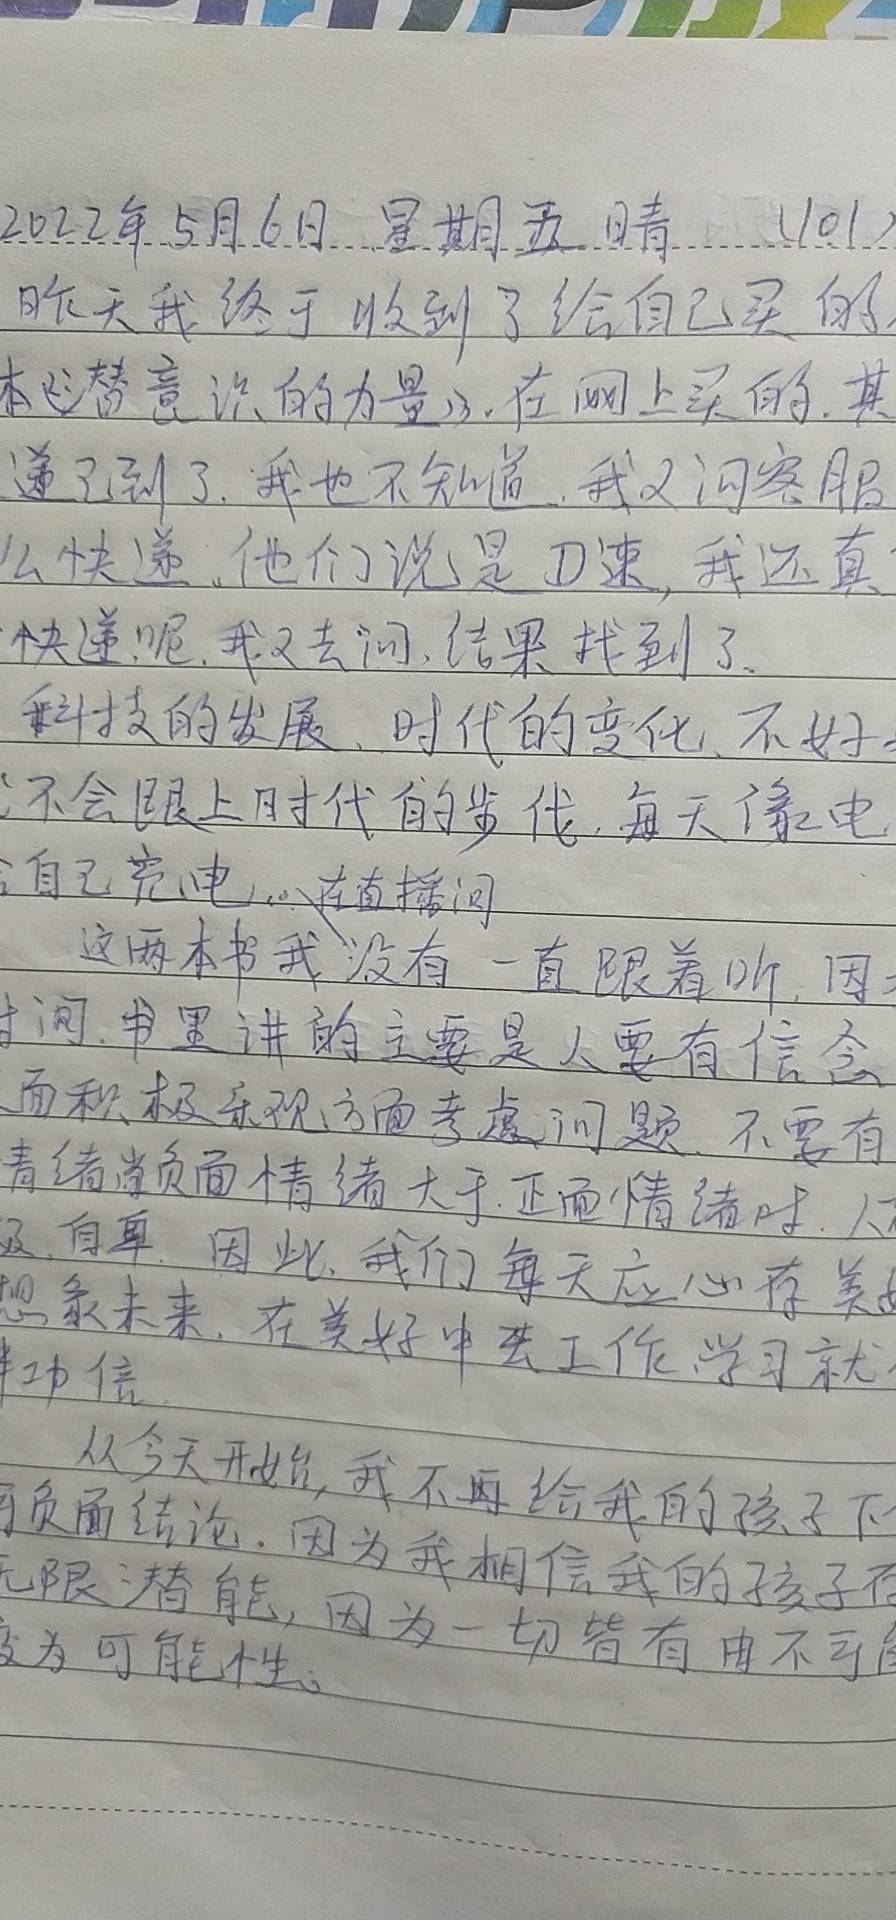 2022年5月6日 星期五 晴 (101)
昨天我终于收到了给自己买的
本《潜意识的力量》.在网上买的.其
递已到了.我也不知道.我又问客服
么快递.他们说是D速,我还真
快递呢.我又去问,结果找到了.
科技的发展、时代的变化、不好
不会跟上时代的步伐.每天像电
自己充电...在直播间
这两本书我没有一直跟着听,因
时间.书里讲的主要是人要有信念
面积极乐观方面考虑问题.不要有
情绪当负面情绪大于正面情绪时.人
极.自卑.因此.我们每天应心存美好
想象未来.在美好中去工作.学习就
半功倍.
从今天开始,我不再给我的孩子下
负面结论.因为我相信我的孩子存
无限潜能,因为一切皆有由不可能
变为可能性.